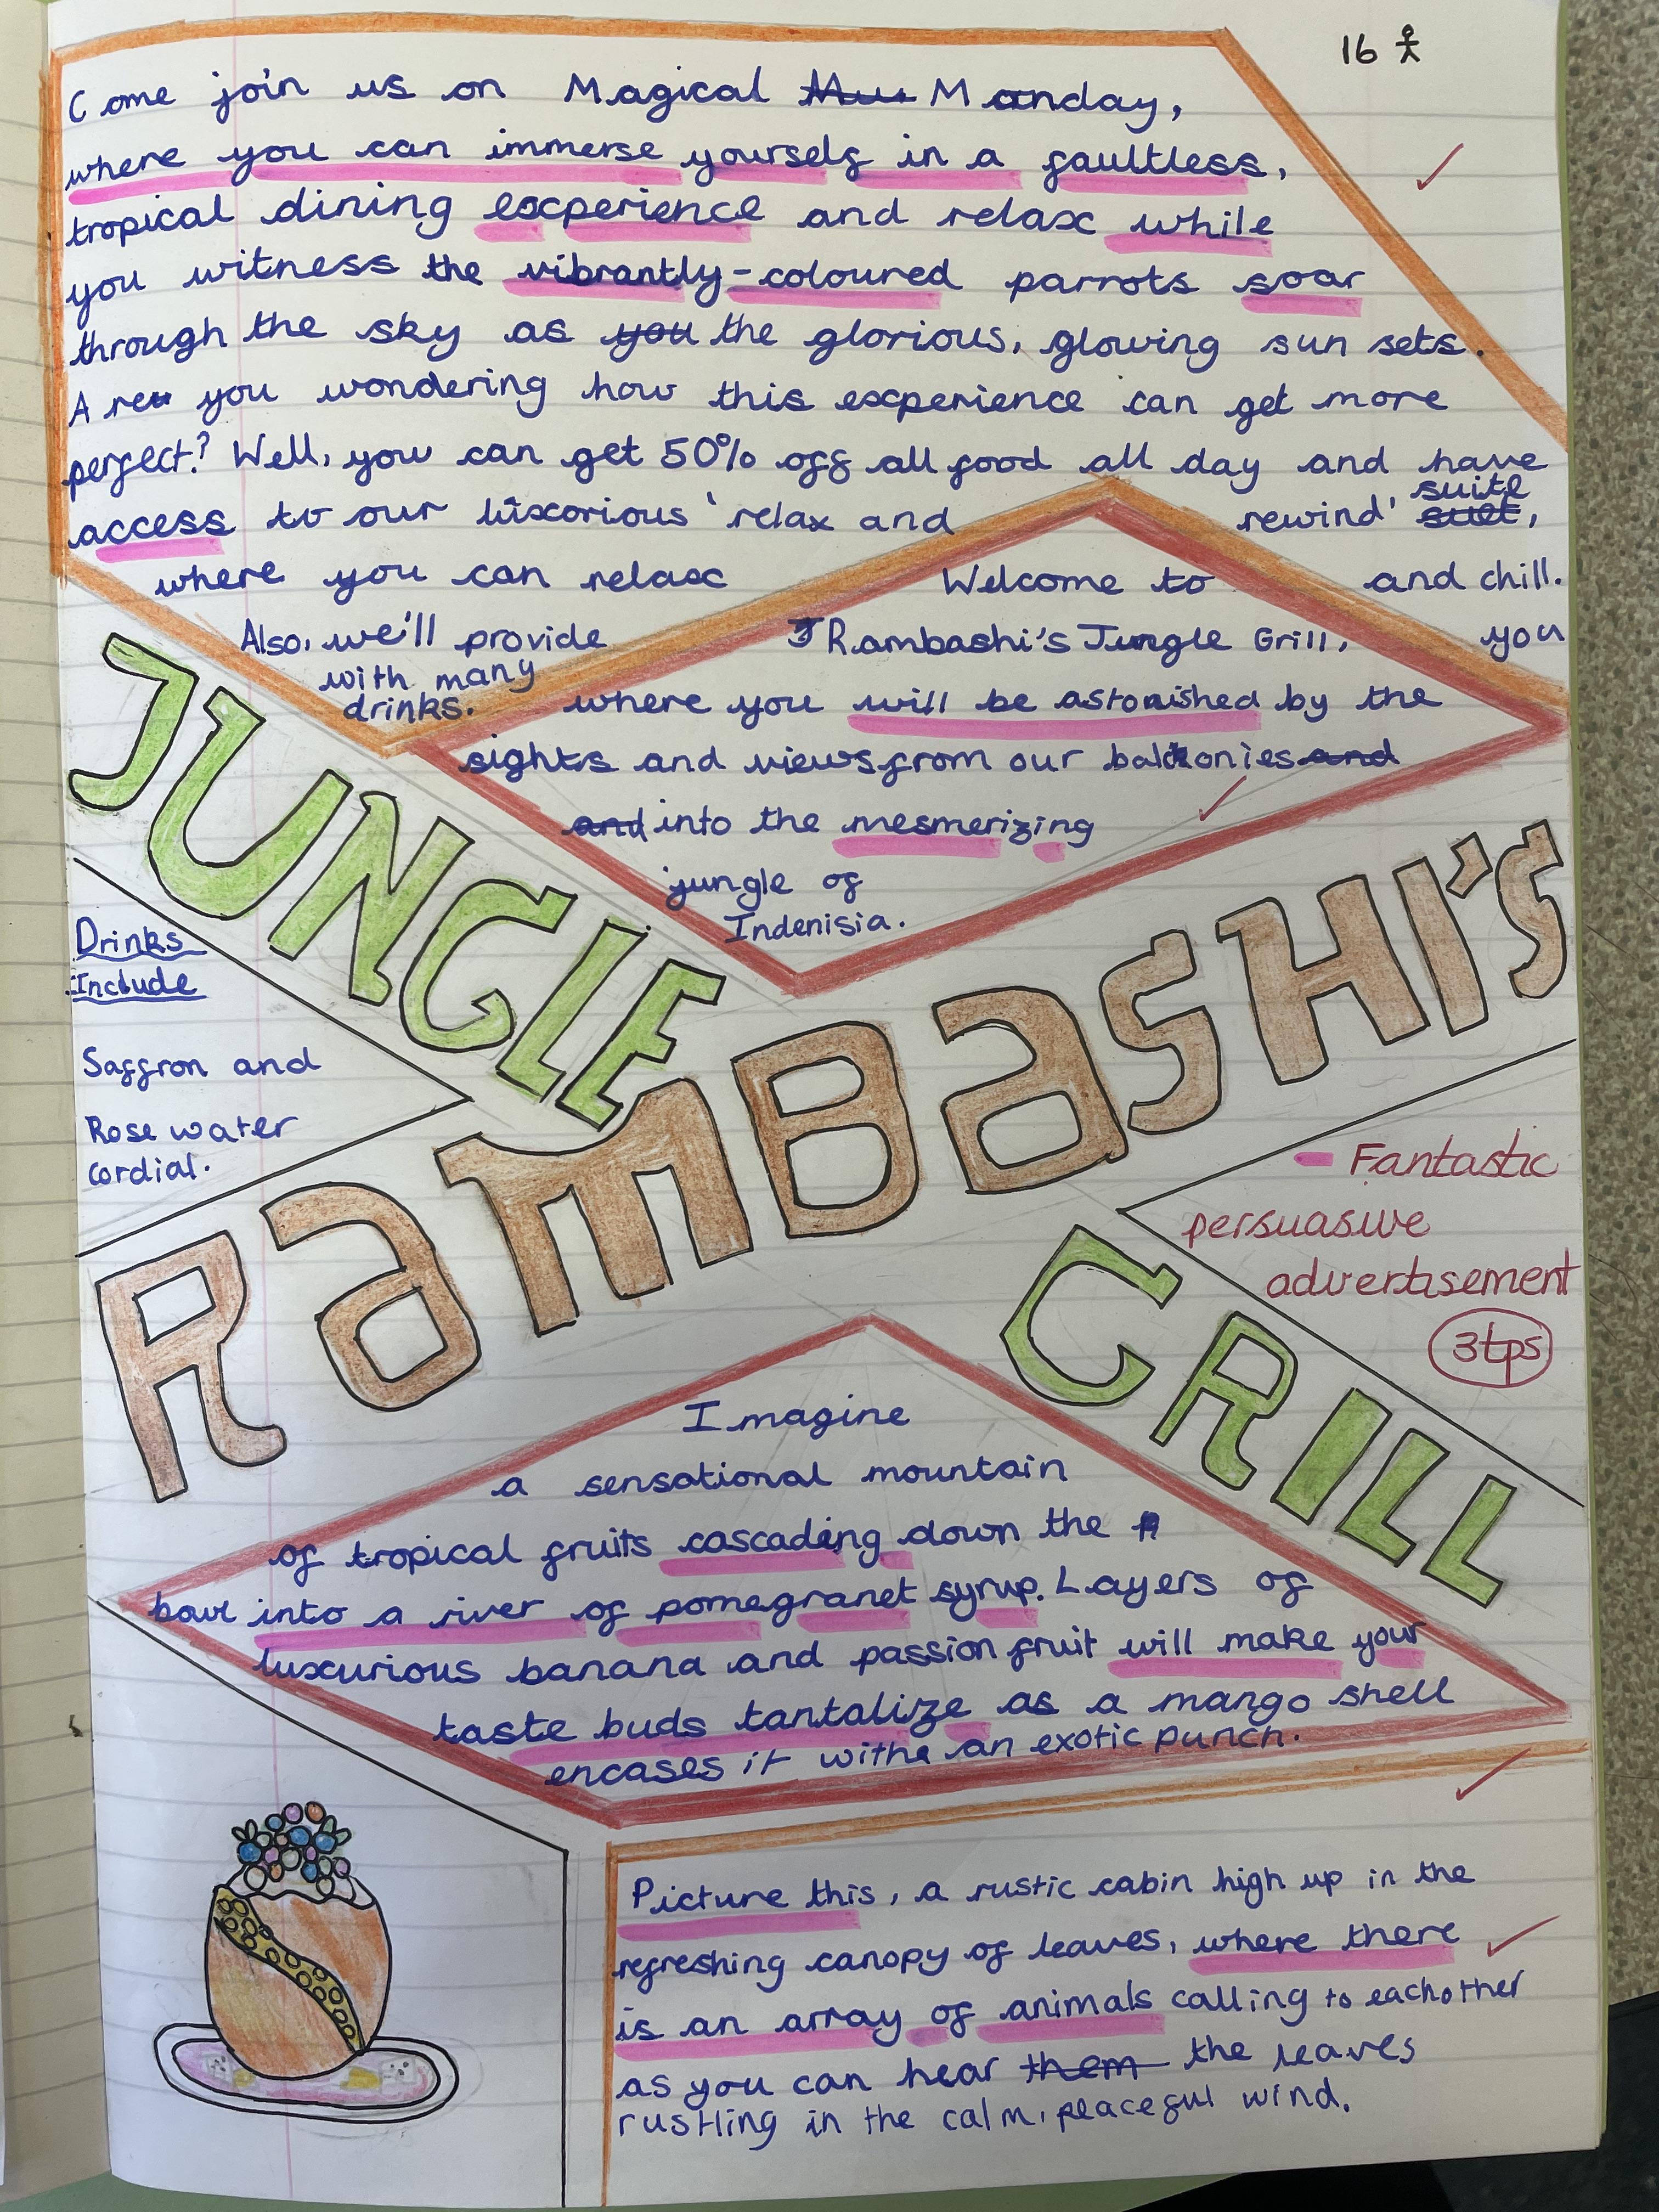 16
Come join us on Magical Manday,
where you can immerse yourself in a faultless,
tropical dining experience and relax while
you witness the vibrantly-coloured parrots soar
through the sky as you the glorious, glowing sun sets.
Are you wondering how this experience can get more
perfect? Well, you can get 50% off all food all day and have
access to our luxorious 'relax and rewind' suite suet,
where you can relax and chill.
Also, we'll provide you
with many
drinks.
Welcome to
Rambashi's Jungle Grill,
where you will be astonished by the
sights and views from our balconies and
and into the mesmerizing
jungle of
Indenisia.
JUNGLE
RamBaSHI'S
GRILL
Drinks
Include
Saffron and
Rose water
cordial.
- Fantastic
persuasive
advertisement
3tps
Imagine
a sensational mountain
of tropical fruits cascading down the
bowl into a river of pomegranet syrup. Layers of
luxcurious banana and passion fruit will make your
taste buds tantalize as a mango shell
encases it with an exotic punch.
Picture this, a rustic cabin high up in the
refreshing canopy of leaves, where there
is an array of animals calling to eachother
as you can hear them the leaves
rustling in the calm, peaceful wind.